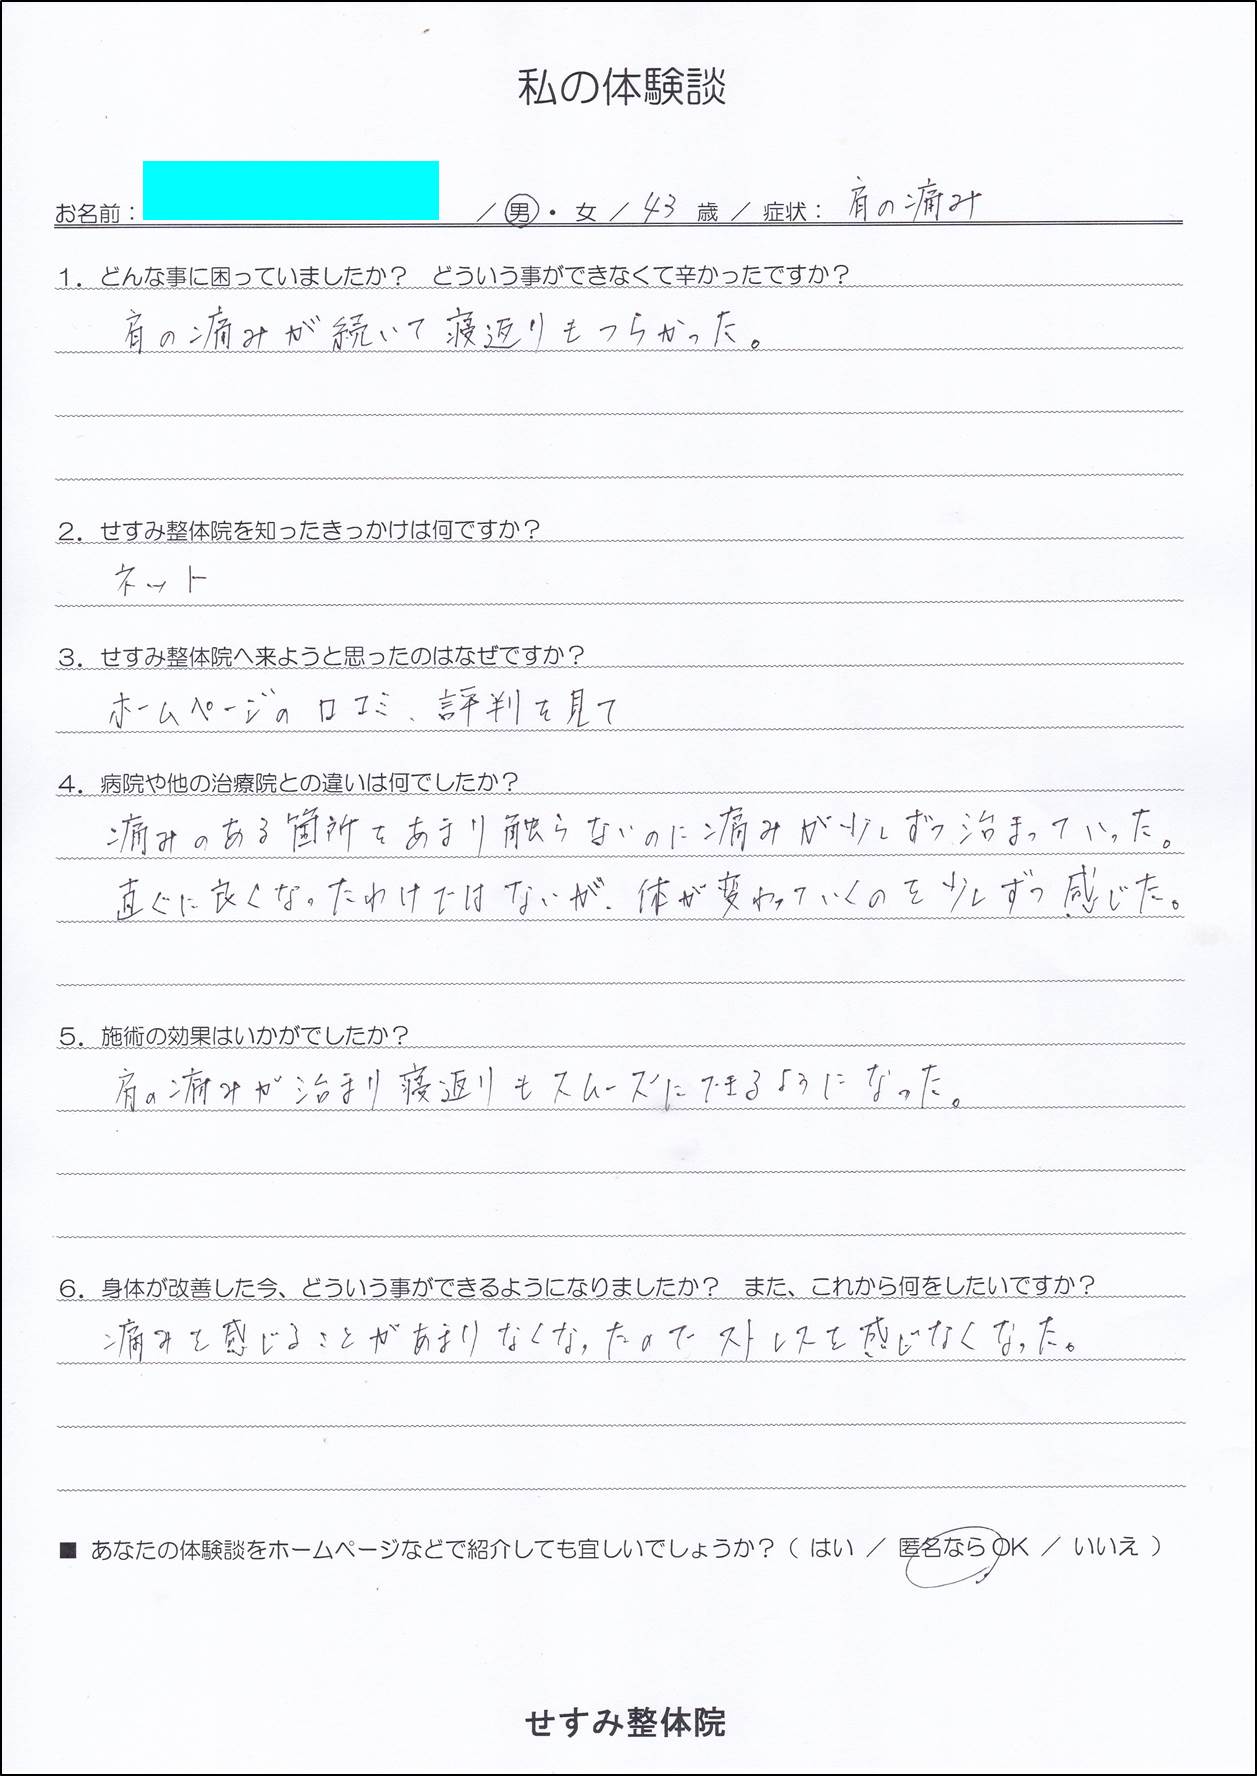 私の体験談
お名前： ／ 男 ・ 女 ／ 43 歳 ／ 症状： 肩の痛み
1．どんな事に困っていましたか？　どういう事ができなくて辛かったですか？
肩の痛みが続いて寝返りもつらかった。
2．せすみ整体院を知ったきっかけは何ですか？
ネット
3．せすみ整体院へ来ようと思ったのはなぜですか？
ホームページの口コミ、評判を見て
4．病院や他の治療院との違いは何でしたか？
痛みのある箇所をあまり触らないのに痛みが少しずつ治まっていった。
直ぐに良くなったわけではないが、体が変わっていくのを少しずつ感じた。
5．施術の効果はいかがでしたか？
肩の痛みが治まり寝返りもスムーズにできるようになった。
6．身体が改善した今、どういう事ができるようになりましたか？　また、これから何をしたいですか？
痛みを感じることがあまりなくなったのでストレスを感じなくなった。
■ あなたの体験談をホームページなどで紹介しても宜しいでしょうか？（ はい ／ 匿名ならOK ／ いいえ ）
せすみ整体院